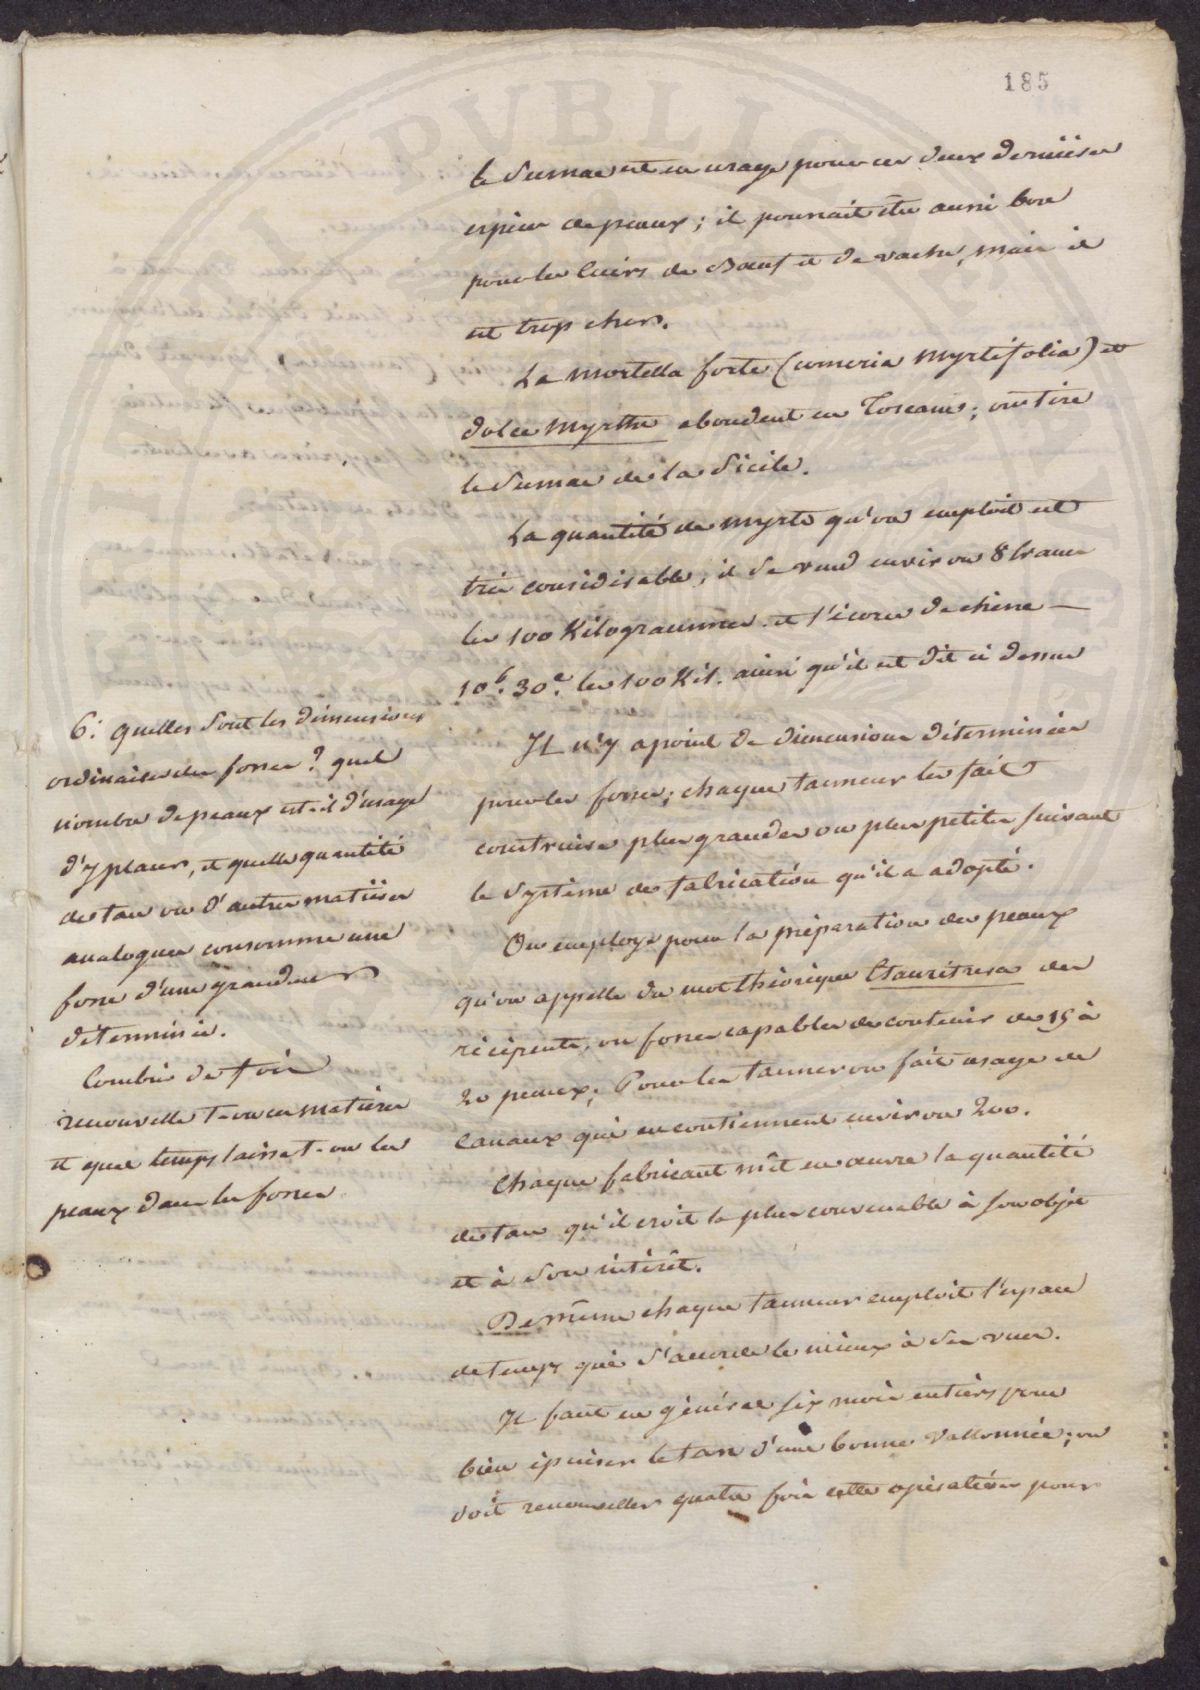 185
le Sumac est en usage pour ces deux dernières
espèces de peaux; il pourrait être aussi bon
pour les Cuirs de Bœuf et de vache, mais il
est trop cher.
La mortella forte (comeria Myrtifolia) et
dolce Myrthe abondent en Toscane; on tire
le Sumac de la Sicile.
La quantité de Myrte qu'on emploit est
très considérable, il se vend environ 8 francs
les 100 Kilogrammes et l'écorce de chêne —
10f. 30c. les 100 Kil. ainsi qu'il est dit ci dessus
6: Quelles sont les dimensions
ordinaires des fosses? quel
nombre de peaux est-il d'usage
d'y placer, et quelle quantité
de tan ou d'autres matières
analogues consomme une
fosse d'une grandeur
déterminée.
Combien de fois
renouvelle t-on ces matières
et quel temps laisse t-on les
peaux dans les fosses
Il n'y a point de dimensions déterminées
pour les fosses; chaque tanneur les fait
construire plus grandes ou plus petites suivant
le Système de fabrication qu'il a adopté.
On employe pour la préparation des peaux
qu'on appelle du mot théorique des
récipients, ou fosses capables de contenir de 15 à
20 peaux; Pour les tanner on fait usage de
Canaux qui en contiennent environ 200.
Chaque fabricant mêt en œuvre la quantité
de tan qu'il croit la plus convenable à son objet
et à son intérêt.
De même chaque tanneur emploit l'espace
de temps qui s'accorde le mieux à ses vues.
Il faut en général six mois entiers pour
bien épuiser le tan d'une bonne Vallonnée; on
doit renouveller quatre fois cette opération pour